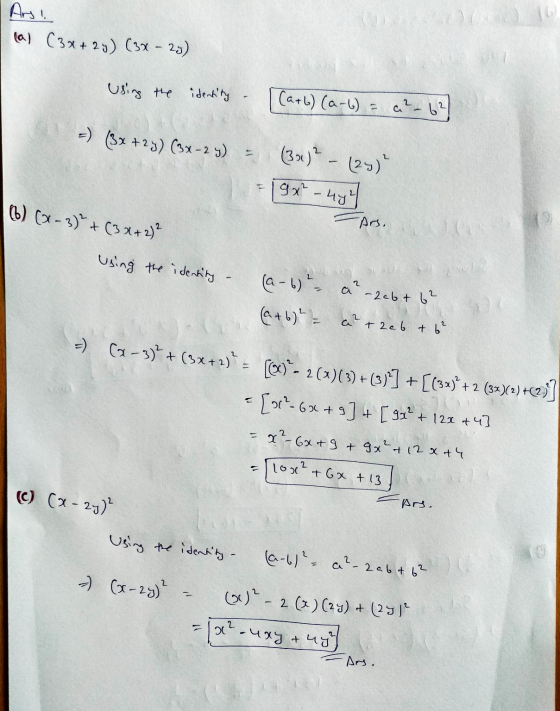 Ans 1.
(a) (3x + 2y) (3x - 2y)
Using the identity - (a+b) (a-b) = a² - b²
⇒) (3x + 2y) (3x - 2y) = (3x)² - (2y)²
= 9x² - 4y²
Ans.
(b) (x - 3)² + (3x + 2)²
Using the identity - (a - b)² = a² - 2ab + b²
(a + b)² = a² + 2ab + b²
⇒) (x - 3)² + (3x + 2)² = [(x)² - 2(x)(3) + (3)²] + [(3x)² + 2(3x)(2) + (2)²]
= [x² - 6x + 9] + [9x² + 12x + 4]
= x² - 6x + 9 + 9x² + 12x + 4
= 10x² + 6x + 13
Ans.
(c) (x - 2y)²
Using the identity - (a-b)² = a² - 2ab + b²
⇒) (x - 2y)² = (x)² - 2(x)(2y) + (2y)²
= x² - 4xy + 4y²
Ans.